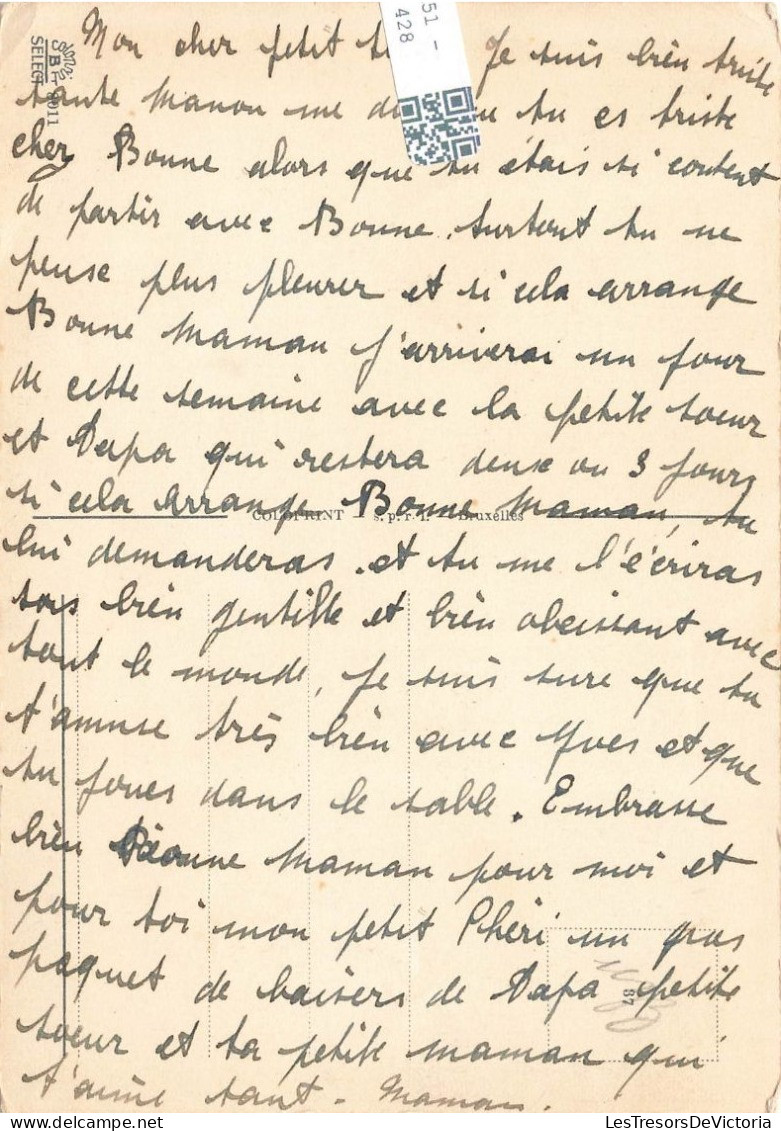 Mon cher petit Je suis bien triste
tante Manou me tu es triste
chez Bonne alors que tu étais si content
de partir avec Bonne. Surtout tu ne
pense plus pleurer et si cela arrange
Bonne Maman j'arriverai un jour
de cette semaine avec la petite soeur
et Papa qui restera deuse ou 3 jours
si cela arrange Bonne Maman, tu
lui demanderas. et tu me l'écriras
sois bien gentille et bien obeissant avec
tout le monde, Je suis sure que tu
t'amuse très bien avec Yves et que
tu joues dans le sable. Embrasse
bien Bonne Maman pour moi et
pour toi mon petit Chéri un gros
paquet de baisers de Papa petite
soeur et ta petite maman qui
t'aime tant - Maman.
51 -
428
SELECT
COLOPRINT s. p. r. l. Bruxelles
87
LesTresorsDeVictoria